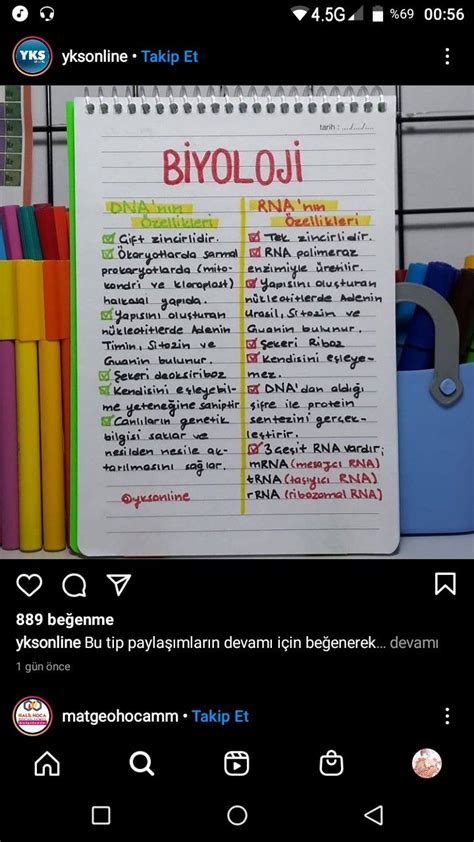 4.5G %69 00:56
YKS
yksonline • Takip Et
tarih : .../.../...
BİYOLOJİ
DNA'nın
Özellikleri
Çift zincirlidir.
Ökaryotlarda sarmal
prokaryotlarda (mito-
kondri ve kloroplast)
halkasal yapıda.
Yapısını oluşturan
nükleotitlerde Adenin
Timin, Sitozin ve
Guanin bulunur.
Şekeri deoksiriboz
Kendisini eşleyebil-
me yeteneğine sahiptir
Canlıların genetik
bilgisi saklar ve
nesilden nesile ak-
tarılmasını sağlar.
@yksonline
RNA'nın
Özellikleri
Tek zincirlidir.
RNA polimeraz
enzimiyle üretilir.
Yapısını oluşturan
nükleotitlerde Adenin
Urasil, Sitozin ve
Guanin bulunur.
Şekeri Riboz
Kendisini eşleye-
mez.
DNA'dan aldığı
şifre ile protein
sentezini gerçek-
leştirir.
3 çeşit RNA vardır;
mRNA (mesajcı RNA)
tRNA (taşıyıcı RNA)
rRNA (ribozomal RNA)
889 beğenme
yksonline Bu tip paylaşımların devamı için beğenerek... devamı
1 gün önce
matgeohocamm • Takip Et